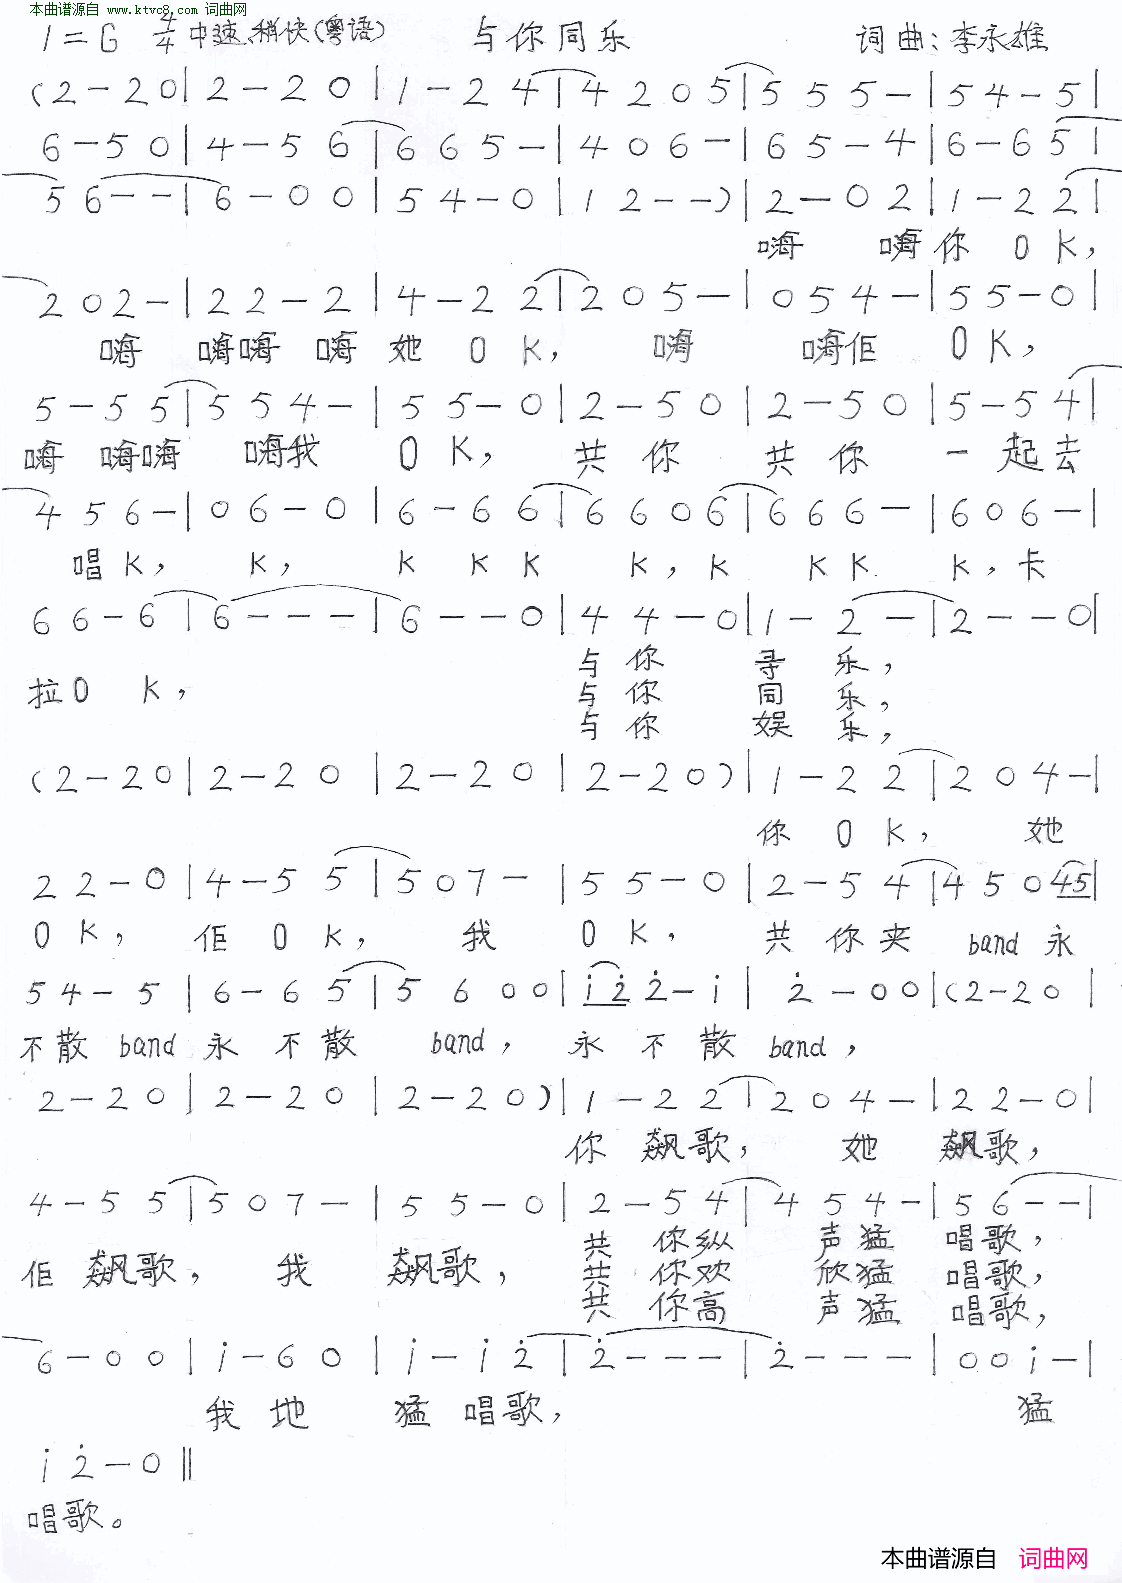 本曲谱源自 www.ktvc8.com 词曲网
1=G 4/4 中速、稍快(粤语) 与你同乐 词曲:李永雄
(2-20|2-20|1-24|4205|555-|54-5|
6-50|4-56|665-|406-|65-4|6-65|
56--|6-00|54-0|12--)|2-02|1-22|
嗨 嗨你 O K,
202-|22-2|4-22|205-|054-|55-0|
嗨 嗨嗨 嗨 她 O K, 嗨 嗨佢 O K,
5-55|554-|55-0|2-50|2-50|5-54|
嗨 嗨嗨 嗨我 O K, 共 你 共 你 一 起去
456-|06-0|6-66|6606|666-|606-|
唱K, K, K K K K, K K K K, 卡
66-6|6---|6--0|44-0|1-2-|2--0|
拉O K, 与你 寻 乐,
与你 同 乐,
与你 娱 乐,
(2-20|2-20|2-20|2-20)|1-22|204-|
你 O K, 她
22-0|4-55|507-|55-0|2-54|45045|
O K, 佢 O K, 我 O K, 共 你夹 band 永
54-5|6-65|5600|i̇2̇2̇-i̇|2̇-00|(2-20|
不散 band 永 不 散 band, 永 不 散 band,
2-20|2-20|2-20)|1-22|204-|22-0|
你 飙歌, 她 飙歌,
4-55|507-|55-0|2-54|454-|56--|
佢 飙歌, 我 飙歌, 共 你纵 声猛 唱歌,
共 你欢 欣猛 唱歌,
共 你高 声猛 唱歌,
6-00|i̇-60|i̇-i̇2̇|2̇---|2̇---|00i̇-|
我 地 猛 唱歌, 猛
i̇2̇-0‖
唱歌。
本曲谱源自 词曲网